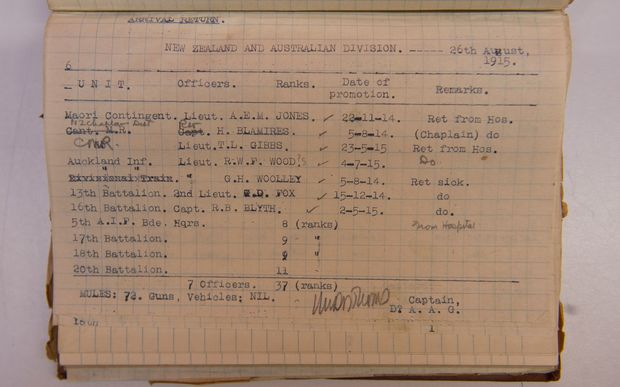 ARRIVAL RETURN.
NEW ZEALAND AND AUSTRALIAN DIVISION. ----- 26th August, 1915.
6
UNIT. Officers. Ranks. Date of promotion. Remarks.
Maori Contingent. Lieut. A.E.M. JONES. ✓ 22-11-14. Ret from Hos.
NZ Chaplain Dept Rev
Cant. M.R. Capt. H. BLAMIRES. ✓ 5-8-14. (Chaplain) do
CMR. Lieut. T.L. GIBBS. ✓ 23-5-15 Ret from Hos.
Auckland Inf. Lieut. R.W.F. WOOD'S ✓ 4-7-15. Do.
Divisional Train. " G.H. WOOLLEY 5-8-14. Ret sick.
13th Battalion. 2nd Lieut. G.D. FOX ✓ 15-12-14. do
16th Battalion. Capt. R.B. BLYTH. ✓ 2-5-15. do.
5th A.I.F. Bde. Hqrs. 8 (ranks) from Hospital
17th Battalion. 9 "
18th Battalion. 9 "
20th Battalion. 11
7 Officers. 37 (ranks)
MULES; 72. Guns, Vehicles; NIL.
Captain,
D. A. A. G.
1